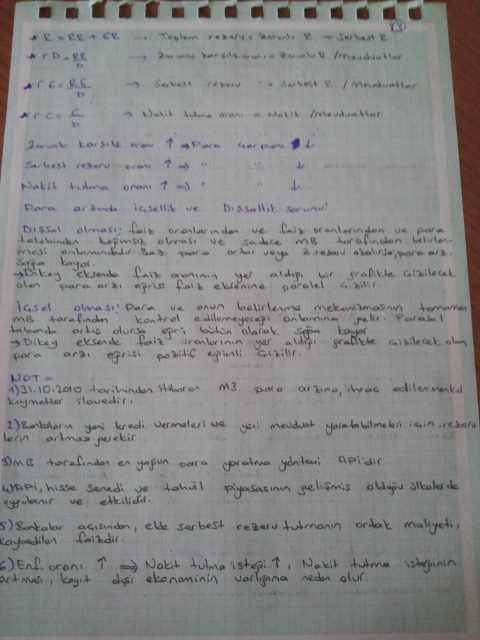 3
* R = RR + ER → Toplam rezerv = Zorunlu R + Serbest R
* rD = RR/D → Zorunlu karşılık oranı = Zorunlu R / Mevduatlar
* rE = RE/D → Serbest rezerv " = Serbest R / Mevduatlar
* rC = C/D → Nakit tutma oranı = Nakit / Mevduatlar
Zorunlu karşılık oranı ↑ ⇒ Para çarpanı ↓
Serbest rezerv oranı ↑ ⇒ " " ↓
Nakit tutma oranı ↑ ⇒ " ↓
Para arzında içsellik ve Dışsallık sorunu:
Dışsal olması; faiz oranlarından ve faiz oranlarından ve para
talebinden bağımsız olması ve sadece MB tarafından belirlen-
mesi anlamındadır. Baz para artar veya z.rezerv azalırsa, para arzı
sağa kayar.
→ Dikey eksende faiz oranının yer aldığı bir grafikte çizilecek
olan para arzı eğrisi faiz eksenine paralel çizilir.
İçsel olması; Para ve onun belirlenme mekanizmasının tamamen
MB tarafından kontrol edilemeyeceği anlamına gelir. Parasal
tabanda artış olursa eğri bütün olarak sağa kayar
→ Dikey eksende faiz oranlarının yer aldığı grafikte çizilecek olan
para arzı eğrisi pozitif eğimli çizilir.
NOT =
1) 31.10.2010 tarihinden itibaren M3 para arzına, ihraç edilen menkul
kıymetler ilavedir.
2) Bankaların yeni kredi vermeleri ve yeni mevduat yaratabilmeleri için, rezerv
lerin artması gerekir.
3) MB tarafından en yoğun para yaratma yöntemi APİ'dir
4) APİ, hisse senedi ve tahvil piyasasının gelişmiş olduğu ülkelerde
uygulanır ve etkilidir.
5) Bankalar açısından, elde serbest rezerv tutmanın ortak maliyeti,
kaybedilen faizdir.
6) Enf. oranı ↑ ⇒ Nakit tutma isteği ↑, Nakit tutma isteğinin
artması, kayıt dışı ekonominin varlığına neden olur.